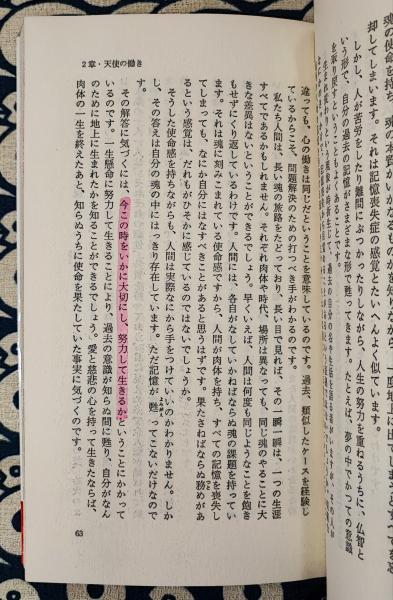 魂の使命を持ち、魂の本質がいかなるものかを知りながら、一度地上に出てしまうとすべてを忘
却してしまいます。それは記憶喪失症の感覚とたいへんよく似ています。
しかし、人が苦労をしたり難問にぶつかったりしながら、人生の努力を重ねるうちに、仏智と
いう形で、自分の過去の記憶がさまざまな形で甦ってきます。たとえば、夢の中でかつての意識
を取り戻すということもよくあることです。
2章・天使の働き
違っても、心の働きは同じだということを意味しているのです。過去、類似したケースを経験し
ているからこそ、問題解決のための打つべき手がわかるのです。
私たち人間は、長い魂の旅路をたどっており、長い目で見れば、その一瞬一瞬は、一つの生涯
すべてであるかもしれません。それぞれ肉体や時代、場所は異なっても、同じ魂のやることに大
きな差異はないということができるでしょう。早くいえば、人間は何度も同じようなことを飽き
もせずにくり返しているわけです。人間には、各自がなしていかねばならぬ魂の課題を持ってい
ます。それは魂に刻みこまれている使命感ですから、人間が肉体を持ち、すべての記憶を喪失し
てしまっても、なにか自分にはなすべきことがあると思うはずです。果たさねばならぬ務めがあ
るという感覚は、だれもがひそかに感じているのではないでしょうか。
そうした使命感を持ちながらも、人間は実際なにから手をつけていいのかわかりません。しか
し、その答えは自分の魂の中にはっきり存在しています。ただ記憶が甦ってこないだけなので
よみがえ
す。
その解答に気づくには、今この時をいかに大切にし、努力して生きるかということにかかって
いるのです。一生懸命に努力して生きることにより、過去の意識が知らぬ間に甦り、自分がなん
のために地上に生まれたかを知ることができるでしょう。愛と慈悲の心を持って生きたならば、
肉体の一生を終えたあと、知らぬうちに使命を果たしていた事実に気づくのです。
63